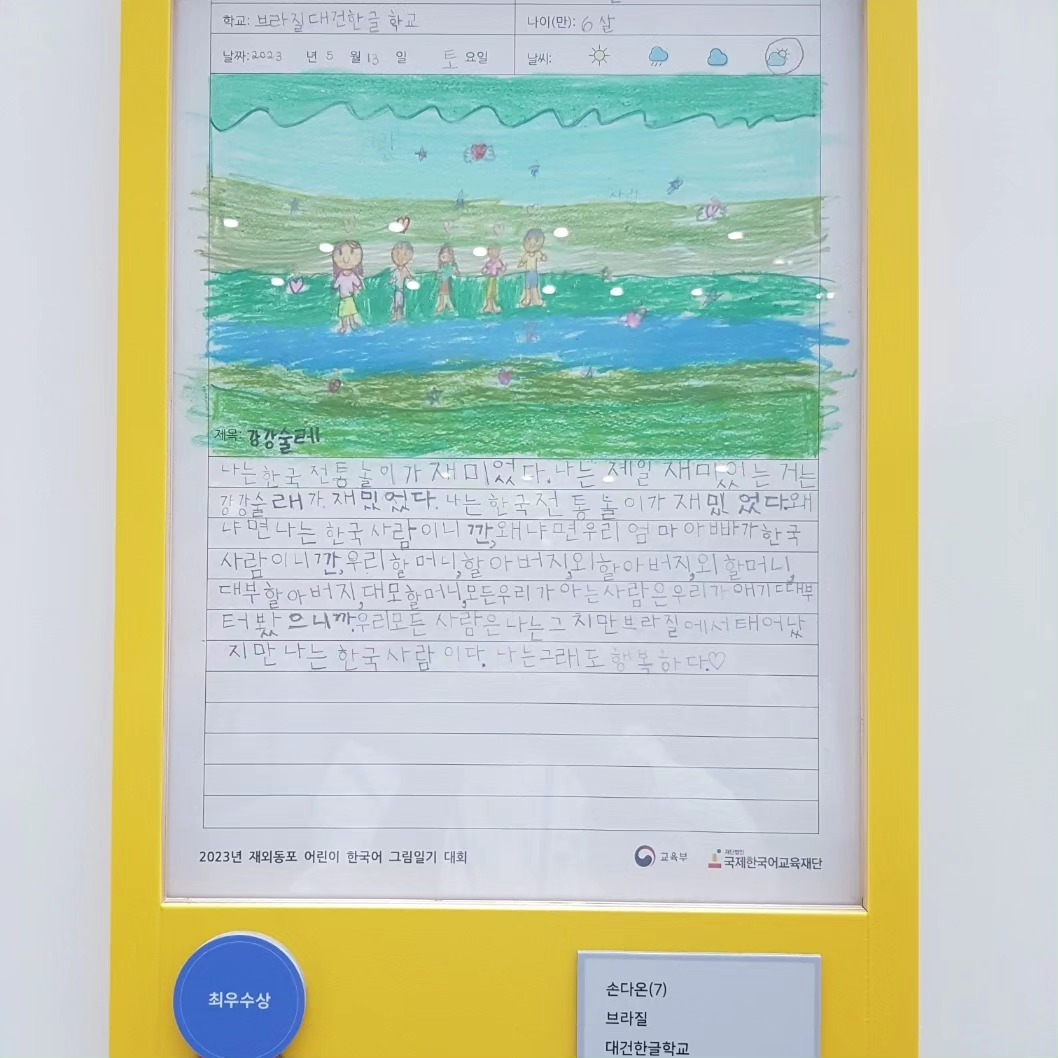 학교: 브라질대건한글학교
나이(만): 6살
날짜: 2023 년 5 월 13 일 토 요일
날씨:
사랑
제목: 강강술래
나는한국전통놀이가재미있었다.나는 제일 재미있는 거는
강강술래가.재밌었다.나는한국전통놀이가 재밌었다.왜
냐면나는 한국사람이니깐,왜냐면우리 엄마아빠가한국
사람이니깐,우리할머니,할아버지,외할아버지,외할머니,
대부할아버지,대모할머니,모든우리가아는사람은우리가애기때부
터봤으니까.우리모든 사람은나는그치만브라질에서태어났
지만나는한국사람이다. 나는그래도행복하다.♡
2023년 재외동포 어린이 한국어 그림일기 대회
교육부
재단법인
국제한국어교육재단
최우수상
손다온(7)
브라질
대건한글학교